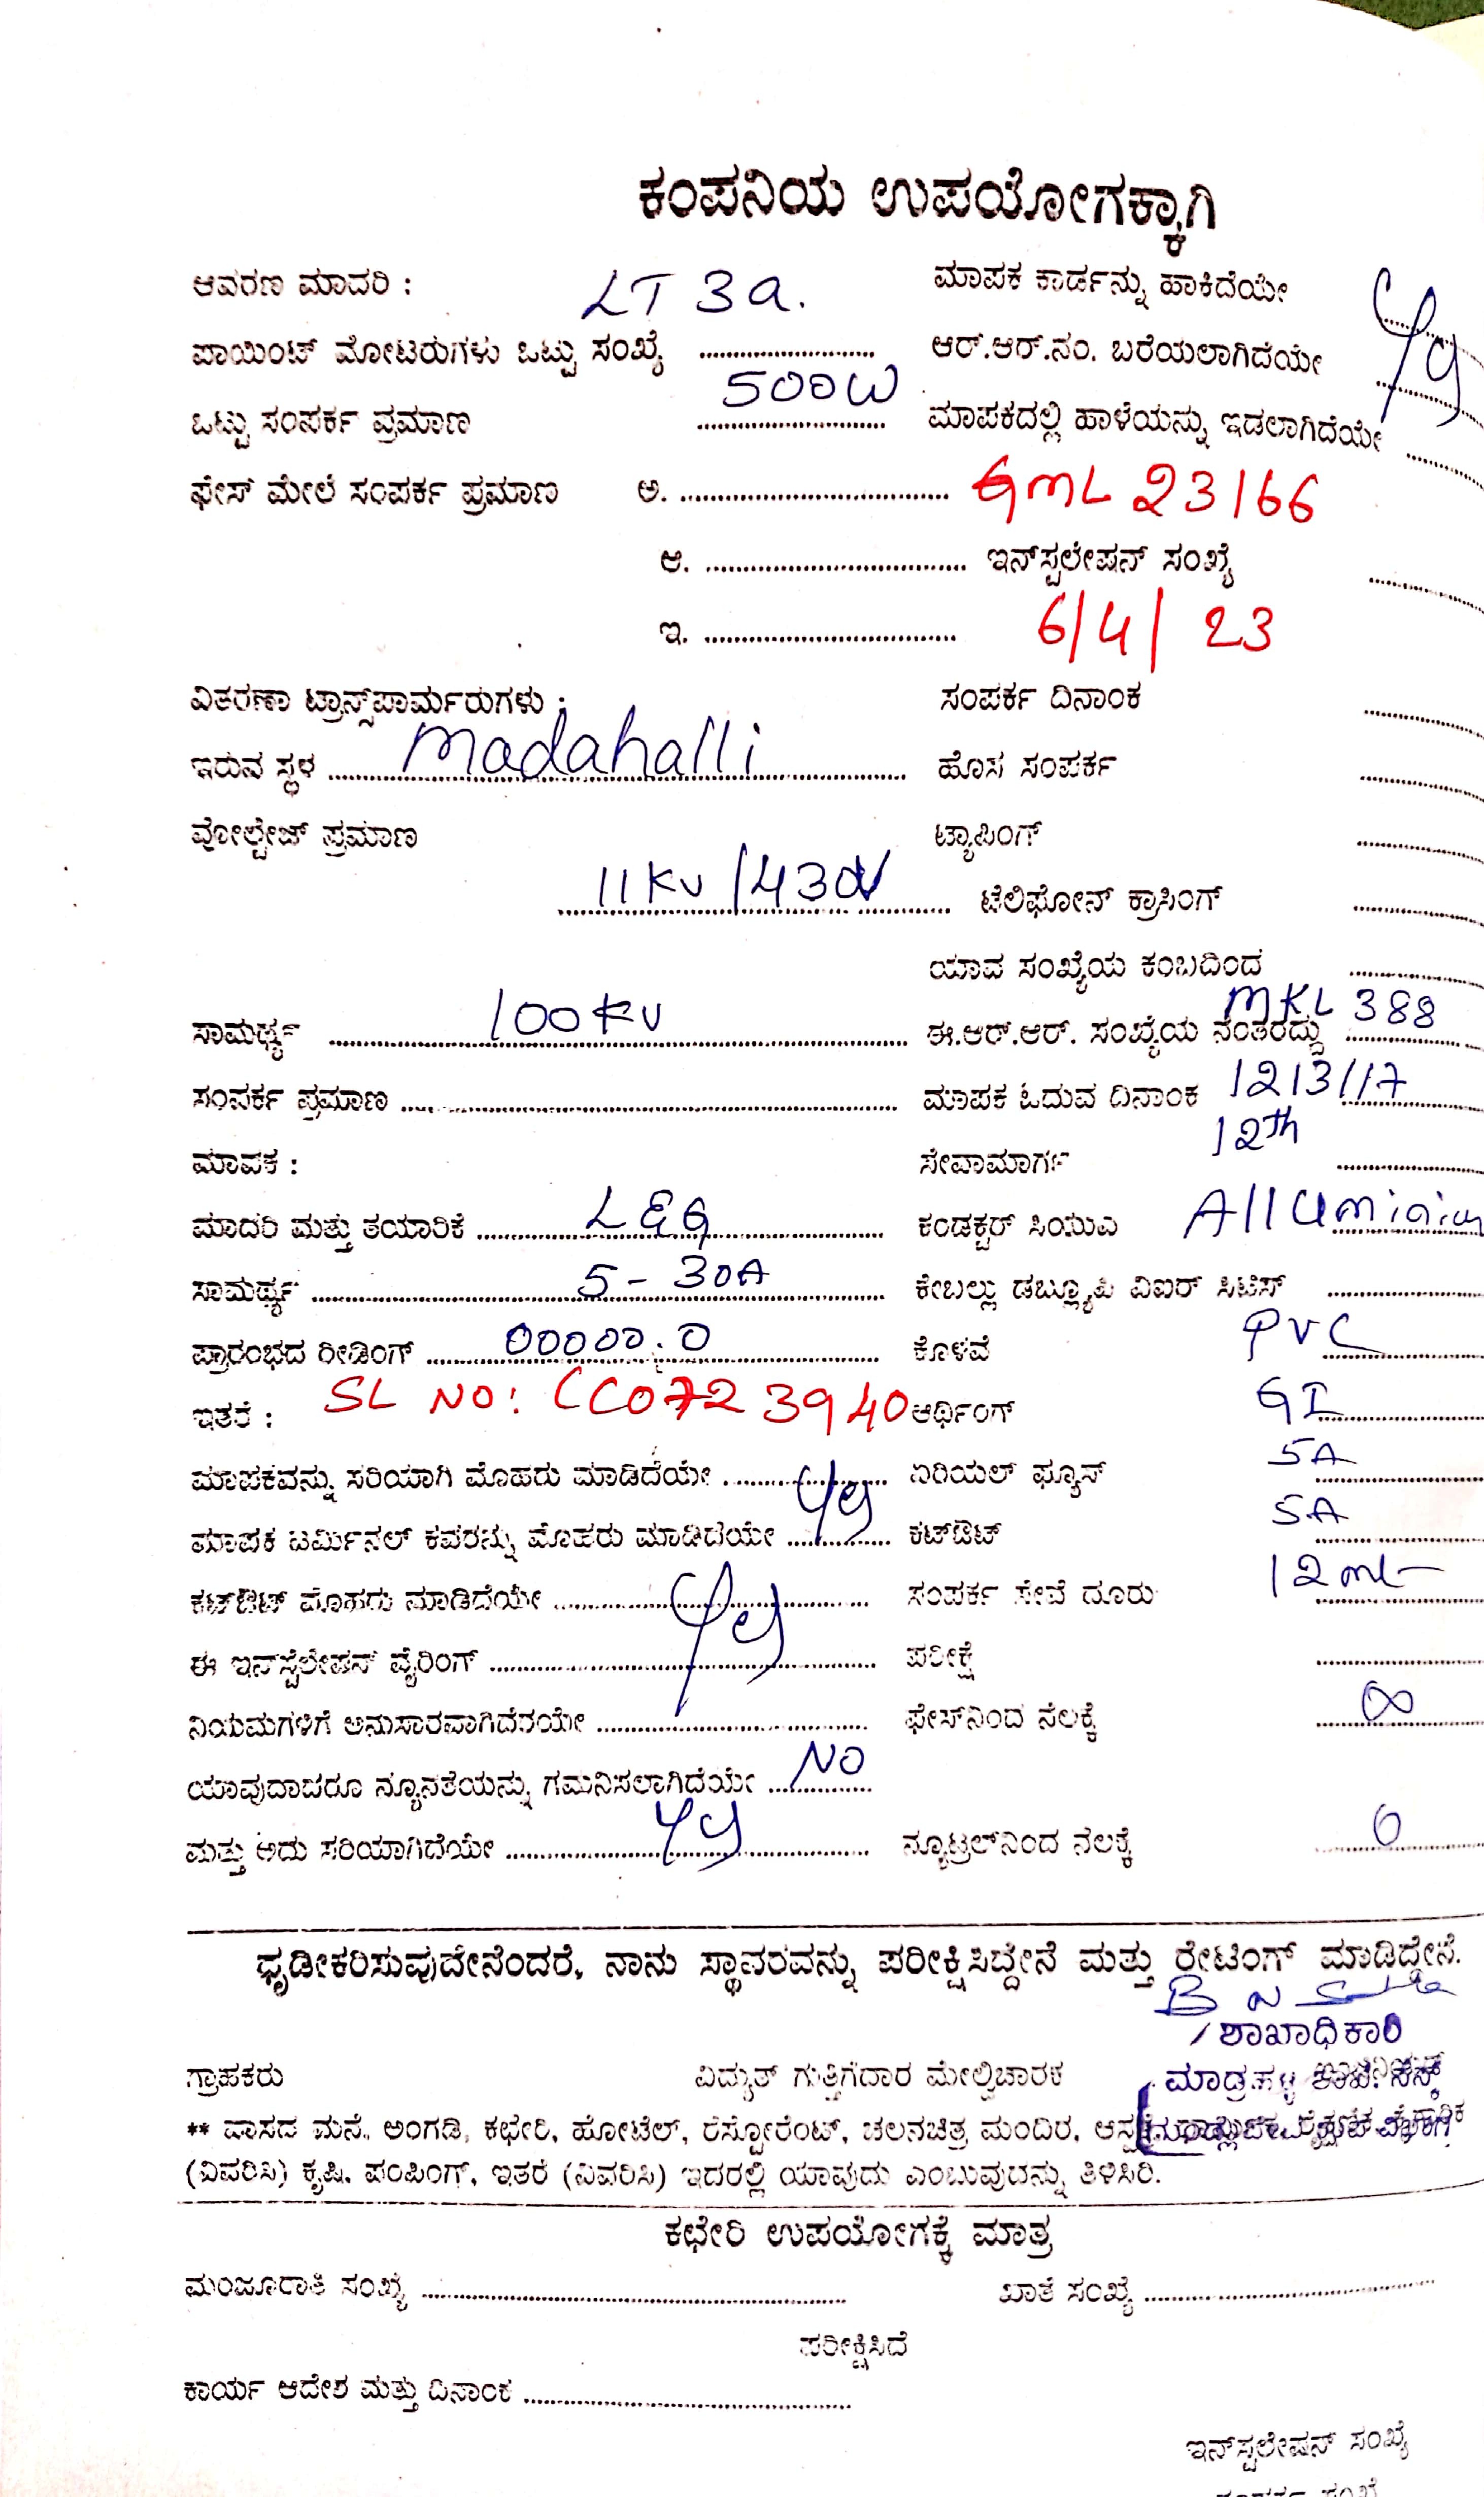 ಕಂಪನಿಯ ಉಪಯೋಗಕ್ಕಾಗಿ
ಆವರಣ ಮಾದರಿ : LT 3a. ಮಾಪಕ ಕಾರ್ಡನ್ನು ಹಾಕಿದೆಯೇ
ಪಾಯಿಂಟ್ ಮೋಟರುಗಳು ಒಟ್ಟು ಸಂಖ್ಯೆ ಆರ್.ಆರ್.ನಂ. ಬರೆಯಲಾಗಿದೆಯೇ
ಒಟ್ಟು ಸಂಪರ್ಕ ಪ್ರಮಾಣ 500W ಮಾಪಕದಲ್ಲಿ ಹಾಳೆಯನ್ನು ಇಡಲಾಗಿದೆಯೇ
ಫೇಸ್ ಮೇಲೆ ಸಂಪರ್ಕ ಪ್ರಮಾಣ ಅ. GML 23166
ಆ. ಇನ್‌ಸ್ಟಲೇಷನ್ ಸಂಖ್ಯೆ
ಇ. 6/4/23
ವಿತರಣಾ ಟ್ರಾನ್ಸ್‌ಪಾರ್ಮರುಗಳು : ಸಂಪರ್ಕ ದಿನಾಂಕ
ಇರುವ ಸ್ಥಳ Madahalli ಹೊಸ ಸಂಪರ್ಕ
ವೋಲ್ಟೇಜ್ ಪ್ರಮಾಣ ಟ್ಯಾಪಿಂಗ್
11KV/430V ಟೆಲಿಫೋನ್ ಕ್ರಾಸಿಂಗ್
ಯಾವ ಸಂಖ್ಯೆಯ ಕಂಬದಿಂದ
ಸಾಮರ್ಥ್ಯ 100KV ಈ.ಆರ್.ಆರ್. ಸಂಖ್ಯೆಯ ನಂತರದ್ದು MKL 388
ಸಂಪರ್ಕ ಪ್ರಮಾಣ ಮಾಪಕ ಓದುವ ದಿನಾಂಕ
12th
ಮಾಪಕ : ಸೇವಾಮಾರ್ಗ
ಮಾದರಿ ಮತ್ತು ತಯಾರಿಕೆ L&G ಕಂಡಕ್ಟರ್ ಸಿಯುಎ
ಸಾಮರ್ಥ್ಯ 5-30A ಕೇಬಲ್ಲು ಡಬ್ಲ್ಯೂಪಿ ವಿಐರ್ ಸಿಟಿಸ್
ಪ್ರಾರಂಭದ ರೀಡಿಂಗ್ 00000.0 ಕೊಳವೆ PVC
ಇತರೆ : SL NO: CC0723940 ಆರ್ಥಿಂಗ್ GI
ಮಾಪಕವನ್ನು ಸರಿಯಾಗಿ ಮೊಹರು ಮಾಡಿದೆಯೇ ಏರಿಯಲ್ ಫ್ಯೂಸ್ 5A
ಮಾಪಕ ಟರ್ಮಿನಲ್ ಕವರನ್ನು ಮೊಹರು ಮಾಡಿದೆಯೇ ಕಟ್‌ಔಟ್ 5A
ಕಟ್‌ಔಟ್ ಮೊಹರು ಮಾಡಿದೆಯೇ ಸಂಪರ್ಕ ಸೇವೆ ದೂರು
ಈ ಇನ್‌ಸ್ಟೆಲೇಷನ್ ವೈರಿಂಗ್ ಪರೀಕ್ಷೆ
ನಿಯಮಗಳಿಗೆ ಅನುಸಾರವಾಗಿದೆನಯೇ ಫೇಸ್‌ನಿಂದ ನೆಲಕ್ಕೆ ∞
ಯಾವುದಾದರೂ ನ್ಯೂನತೆಯನ್ನು ಗಮನಿಸಲಾಗಿದೆಯೇ NO
ಮತ್ತು ಅದು ಸರಿಯಾಗಿದೆಯೇ ನ್ಯೂಟ್ರಲ್‌ನಿಂದ ನೆಲಕ್ಕೆ 0
ಧೃಡೀಕರಿಸುವುದೇನೆಂದರೆ, ನಾನು ಸ್ಥಾವರವನ್ನು ಪರೀಕ್ಷಿಸಿದ್ದೇನೆ ಮತ್ತು ರೇಟಿಂಗ್ ಮಾಡಿದ್ದೇನೆ.
ಶಾಖಾಧಿಕಾರಿ
ಗ್ರಾಹಕರು ವಿದ್ಯುತ್ ಗುತ್ತಿಗೆದಾರ ಮೇಲ್ವಿಚಾರಕ
** ವಾಸದ ಮನೆ, ಅಂಗಡಿ, ಕಛೇರಿ, ಹೋಟೆಲ್, ರೆಸ್ಟೋರೆಂಟ್, ಚಲನಚಿತ್ರ ಮಂದಿರ,
(ವಿವರಿಸಿ) ಕೃಷಿ, ಪಂಪಿಂಗ್, ಇತರೆ (ವಿವರಿಸಿ) ಇದರಲ್ಲಿ ಯಾವುದು ಎಂಬುವುದನ್ನು ತಿಳಿಸಿರಿ.
ಕಛೇರಿ ಉಪಯೋಗಕ್ಕೆ ಮಾತ್ರ
ಮಂಜೂರಾತಿ ಸಂಖ್ಯೆ ಖಾತೆ ಸಂಖ್ಯೆ
ಪರೀಕ್ಷಿಸಿದೆ
ಕಾರ್ಯ ಆದೇಶ ಮತ್ತು ದಿನಾಂಕ
ಇನ್‌ಸ್ಟಲೇಷನ್ ಸಂಖ್ಯೆ